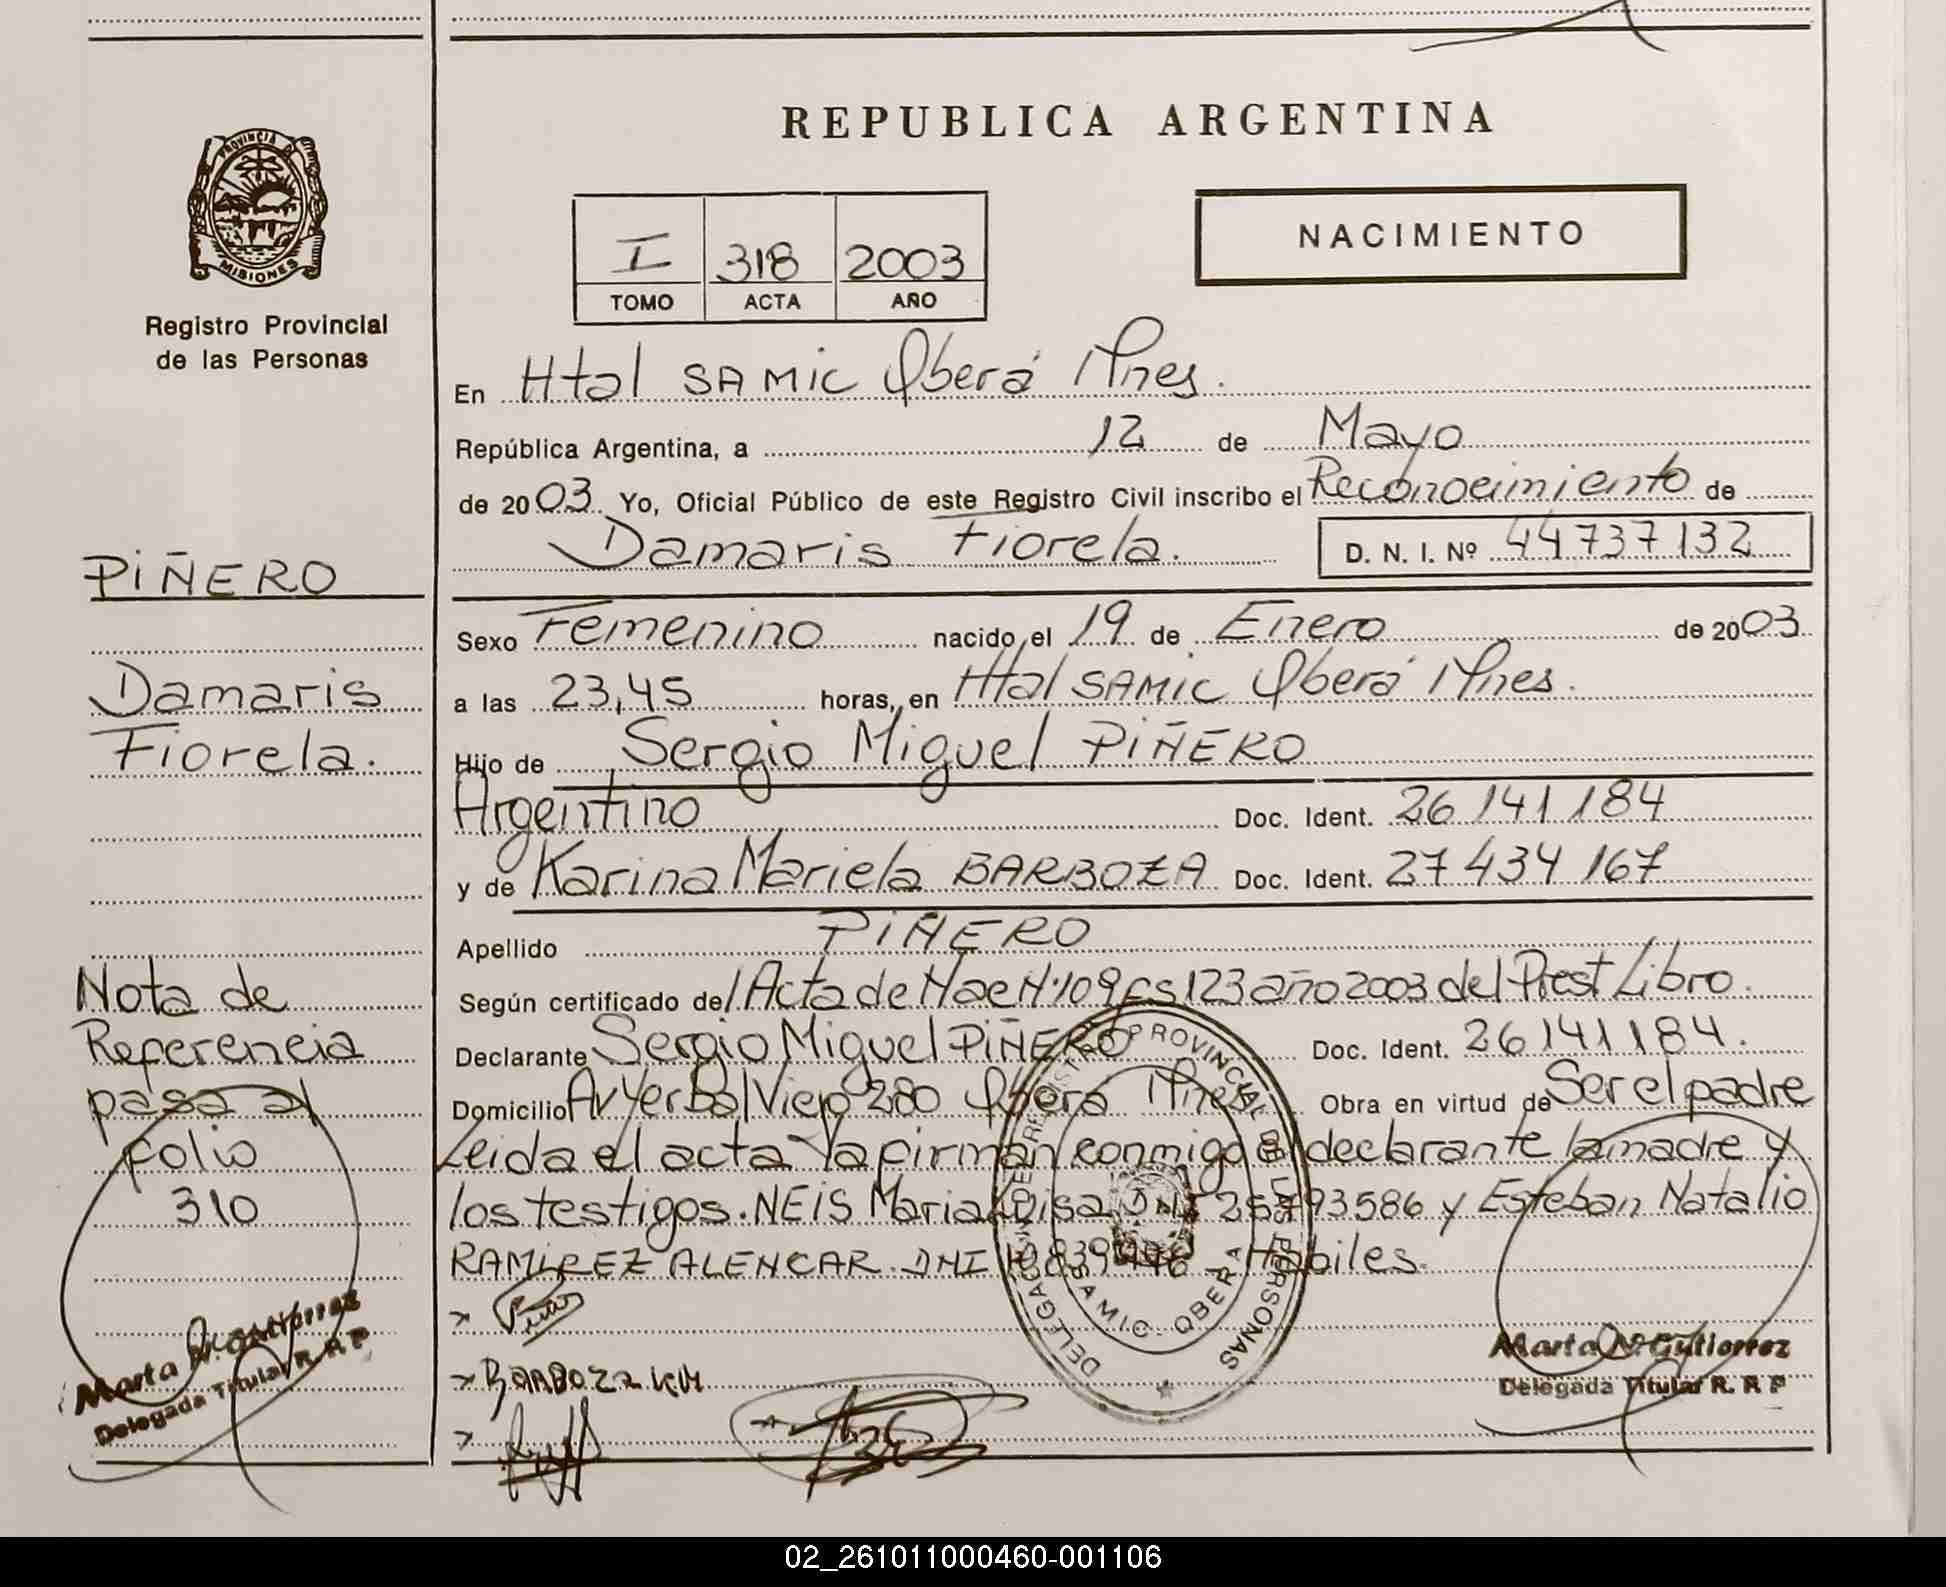 REPUBLICA ARGENTINA
PROVINCIA DE
MISIONES
Registro Provincial
de las Personas
I 318 2003
TOMO ACTA AÑO
NACIMIENTO
En Htal SAMIC Oberá Mnes.
República Argentina, a 12 de Mayo
de 2003. Yo, Oficial Público de este Registro Civil inscribo el Reconocimiento de
Damaris Fiorela. D. N. I. Nº 44737132
PIÑERO
Damaris
Fiorela.
Sexo Femenino nacido el 19 de Enero de 2003.
a las 23,45 horas, en Htal SAMIC Oberá Mnes.
Hijo de Sergio Miguel PIÑERO
Argentino Doc. Ident. 26141184
y de Karina Mariela BARBOZA Doc. Ident. 27434167
Apellido PIÑERO
Según certificado del Acta de Nac Nº 109 Fs 123 año 2003 del Prest Libro.
Declarante Sergio Miguel PIÑERO Doc. Ident. 26141184.
Domicilio Av Yerbal Viejo 280 Oberá Mnes Obra en virtud de Ser el padre
Leida el acta la firman conmigo el declarante la madre y
los testigos. NEIS Maria Luisa DNI 25793586 y Esteban Natalio
RAMIREZ ALENCAR. DNI Habiles.
BARBOZA KM
Nota de
Referencia
pasa al
folio
310
Marta N. Gutierrez
Delegada Titular R. R. P
DELEGACION DEL REGISTRO PROVINCIAL DE LAS PERSONAS
SAMIC OBERA
Marta N. Gutierrez
Delegada Titular R. R. P
02_261011000460-001106